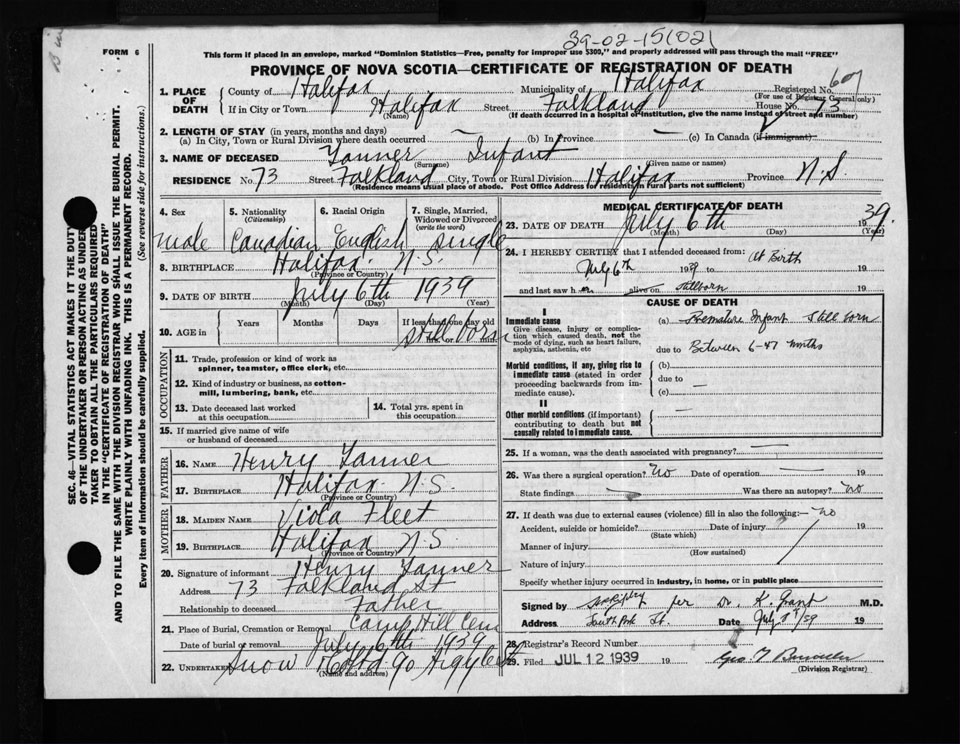 39-02-15(02)
FORM 6
This form if placed in an envelope, marked "Dominion Statistics—Free, penalty for improper use $300," and properly addressed will pass through the mail "FREE"
PROVINCE OF NOVA SCOTIA—CERTIFICATE OF REGISTRATION OF DEATH
1. PLACE OF DEATH County of Halifax Municipality of Halifax Registered No. 607
(For use of Registrar General only)
If in City or Town Halifax Street Falkland House No. 73
(Name) (If death occurred in a hospital or institution, give the name instead of street and number)
2. LENGTH OF STAY (in years, months and days)
(a) In City, Town or Rural Division where death occurred — (b) In Province — (c) In Canada (if immigrant)
3. NAME OF DECEASED Tanner Infant
(Surname) (Given name or names)
RESIDENCE No. 73 Street Falkland City, Town or Rural Division Halifax Province N.S.
(Residence means usual place of abode. Post Office Address for residents in rural parts not sufficient)
4. Sex 5. Nationality (Citizenship) 6. Racial Origin 7. Single, Married, Widowed or Divorced (write the word)
male Canadian English single
8. BIRTHPLACE Halifax N.S.
(Province or Country)
9. DATE OF BIRTH July 6th 1939
(Month) (Day) (Year)
10. AGE in Years Months Days If less than one day old
still born
OCCUPATION
11. Trade, profession or kind of work as spinner, teamster, office clerk, etc.
12. Kind of industry or business, as cotton-mill, lumbering, bank, etc.
13. Date deceased last worked at this occupation 14. Total yrs. spent in this occupation
15. If married give name of wife or husband of deceased
FATHER
16. NAME Henry Tanner
17. BIRTHPLACE Halifax N.S.
(Province or Country)
MOTHER
18. MAIDEN NAME Viola Fleet
19. BIRTHPLACE Halifax N.S.
(Province or Country)
20. Signature of informant Henry Tanner
Address 73 Falkland St
Relationship to deceased Father
21. Place of Burial, Cremation or Removal Camp Hill Cem
Date of burial or removal July 6th 1939
22. UNDERTAKER Snow & Co Ltd 90 Argyle St
(Name and address)
MEDICAL CERTIFICATE OF DEATH
23. DATE OF DEATH July 6th 1939
(Month) (Day) (Year)
24. I HEREBY CERTIFY that I attended deceased from: at Birth
July 6th 1939 to 19
and last saw h alive on Stillborn
CAUSE OF DEATH
I
Immediate cause (a) Premature Infant Stillborn
Give disease, injury or complication which caused death, not the mode of dying, such as heart failure, asphyxia, asthenia, etc
due to Between 6-7 months
Morbid conditions, if any, giving rise to immediate cause (stated in order proceeding backwards from immediate cause).
(b)
due to —
(c)
II
Other morbid conditions (if important) contributing to death but not causally related to immediate cause.
25. If a woman, was the death associated with pregnancy? —
26. Was there a surgical operation? no Date of operation — 19
State findings — Was there an autopsy? no
27. If death was due to external causes (violence) fill in also the following:— no
Accident, suicide or homicide? Date of injury 19
(State which)
Manner of injury
(How sustained)
Nature of injury
Specify whether injury occurred in industry, in home, or in public place
Signed by per Dr. K. Grant M.D.
Address South Park St. Date July 19
28. Registrar's Record Number
29. Filed JUL 12 1939 19
(Division Registrar)
SEC. 46—VITAL STATISTICS ACT MAKES IT THE DUTY
OF THE UNDERTAKER OR PERSON ACTING AS UNDERTAKER
TO OBTAIN ALL THE PARTICULARS REQUIRED
IN THE "CERTIFICATE OF REGISTRATION OF DEATH"
AND TO FILE THE SAME WITH THE DIVISION REGISTRAR WHO SHALL ISSUE THE BURIAL PERMIT.
WRITE PLAINLY WITH UNFADING INK. THIS IS A PERMANENT RECORD.
Every item of information should be carefully supplied. (See reverse side for instructions.)